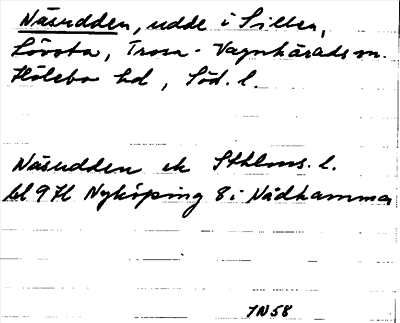 Näsudden, udde i Sillen,
Lövsta, Trosa-Vagnhärads sn.
Hölebo hd, Söd. l.
Näsudden ek Sthlms. l.
bl 9 H Nyköping 8 i Nådhammar
IN58